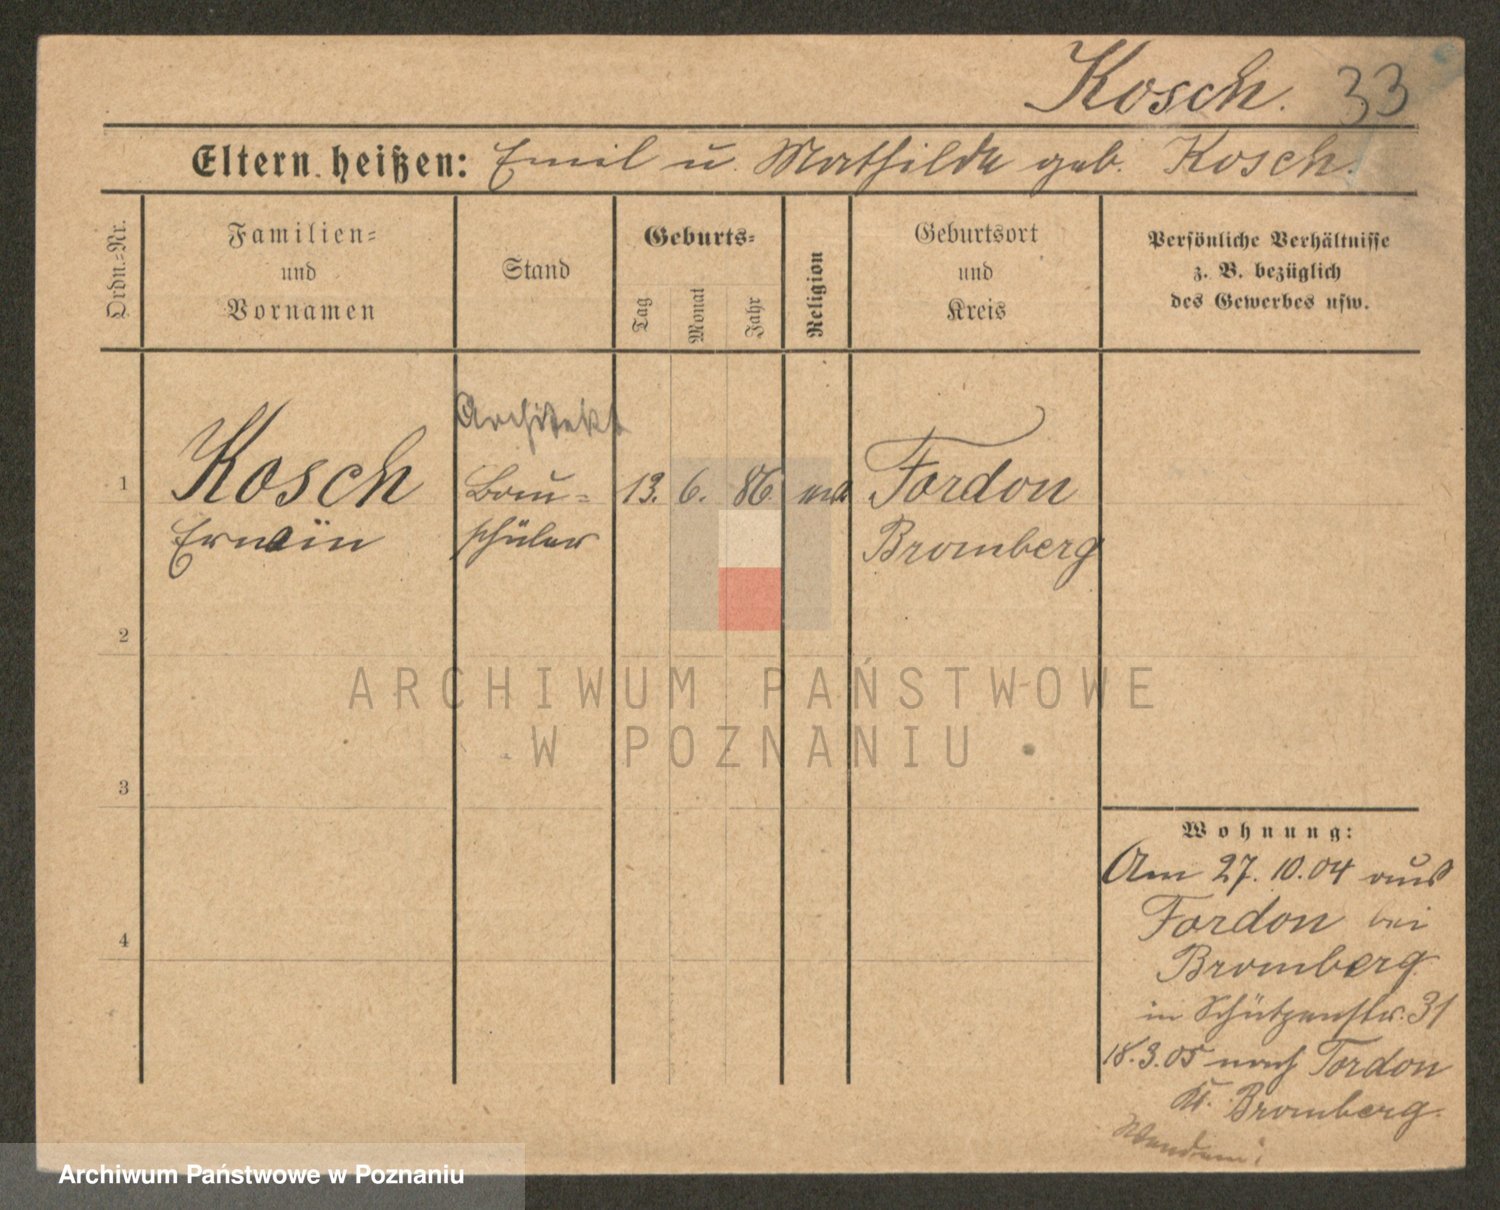 Kosch. 33
Eltern heißen: Emil u. Mathilde geb. Kosch.
Ordn.-Nr.
Familien-
und
Vornamen
Stand
Geburts-
Tag
Monat
Jahr
Religion
Geburtsort
und
Kreis
Persönliche Verhältnisse
z. B. bezüglich
des Gewerbes usw.
Architekt
1 Kosch Bau- 13. 6. 86 Fordon
Erwin schüler Bromberg
2
3
4
ARCHIWUM PAŃSTWOWE
W POZNANIU
Wohnung:
Am 27.10.04 aus
Fordon bei
Bromberg
in Schützenstr. 31
18.3.05 nach Fordon
Kr. Bromberg.
Archiwum Państwowe w Poznaniu